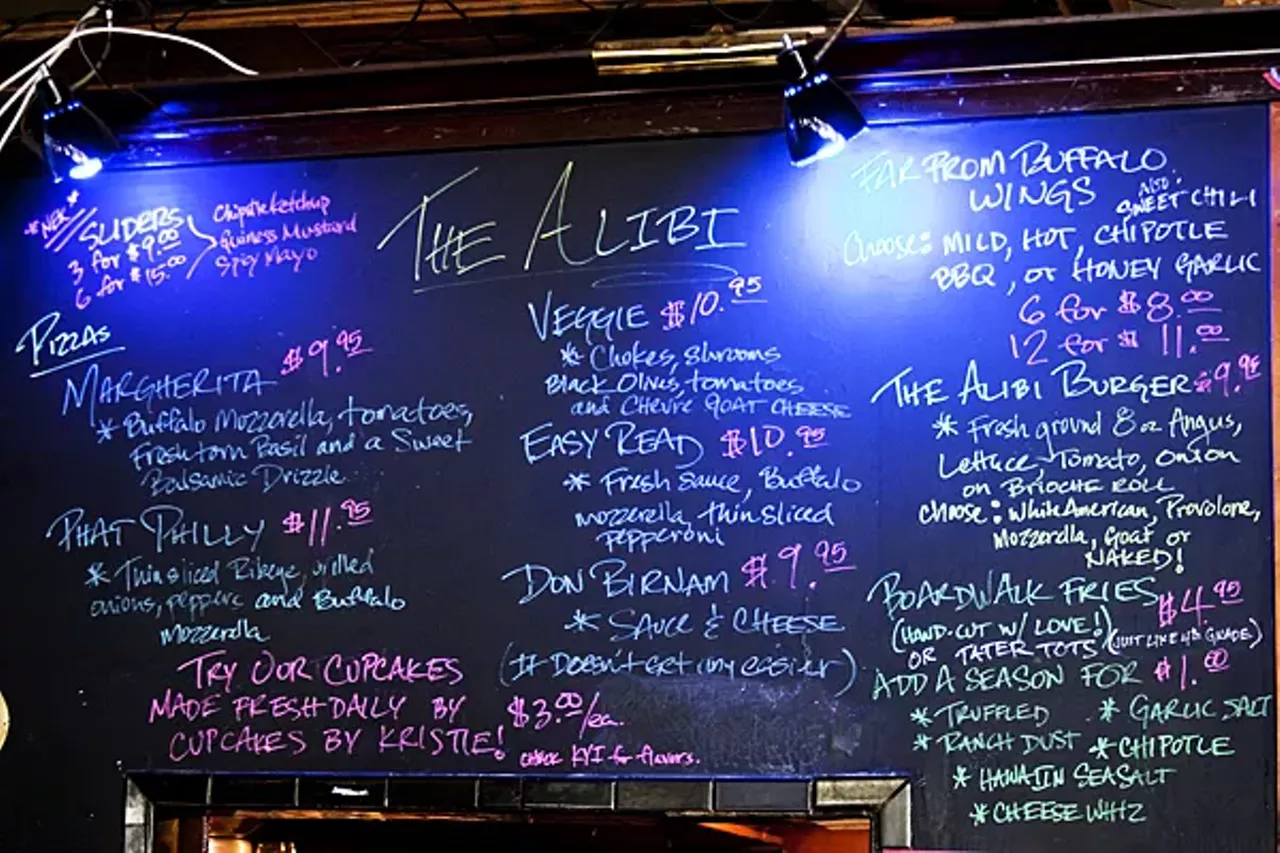 The Alibi
*New*
Sliders
3 for $9.00
6 for $15.00
Chipotle Ketchup
Guiness Mustard
Spicy Mayo
Pizzas
Margherita $9.95
* Buffalo Mozzarella, tomatoes,
Fresh torn Basil and a Sweet
Balsamic Drizzle
Phat Philly $11.95
* Thin sliced Ribeye, grilled
onions, peppers and Buffalo
Mozzarella
Try Our Cupcakes
Made Fresh Daily by
Cupcakes by Kristie!
$3.00/ea.
check for flavors.
Veggie $10.95
* Chokes, shrooms
Black Olives, tomatoes
and Chevre goat cheese
Easy Read $10.95
* Fresh sauce, Buffalo
mozzerella, thin sliced
pepperoni
Don Birnam $9.95
* Sauce & Cheese
(It Doesn't get any easier)
Far From Buffalo
Wings
also: Sweet Chili
Choose: Mild, Hot, Chipotle
BBQ, or Honey Garlic
6 for $8.00
12 for $11.00
The Alibi Burger $9.95
* Fresh ground 8 oz Angus,
Lettuce, Tomato, Onion
on Brioche Roll
choose: White American, Provolone,
Mozzerella, Goat or
Naked!
Boardwalk Fries $4.95
(Hand-cut w/ Love!)
or Tater Tots (Just like 4th grade)
Add a season for $1.00
* Truffled * Garlic Salt
* Ranch Dust * Chipotle
* Hawaiin Sea Salt
* Cheese Whiz